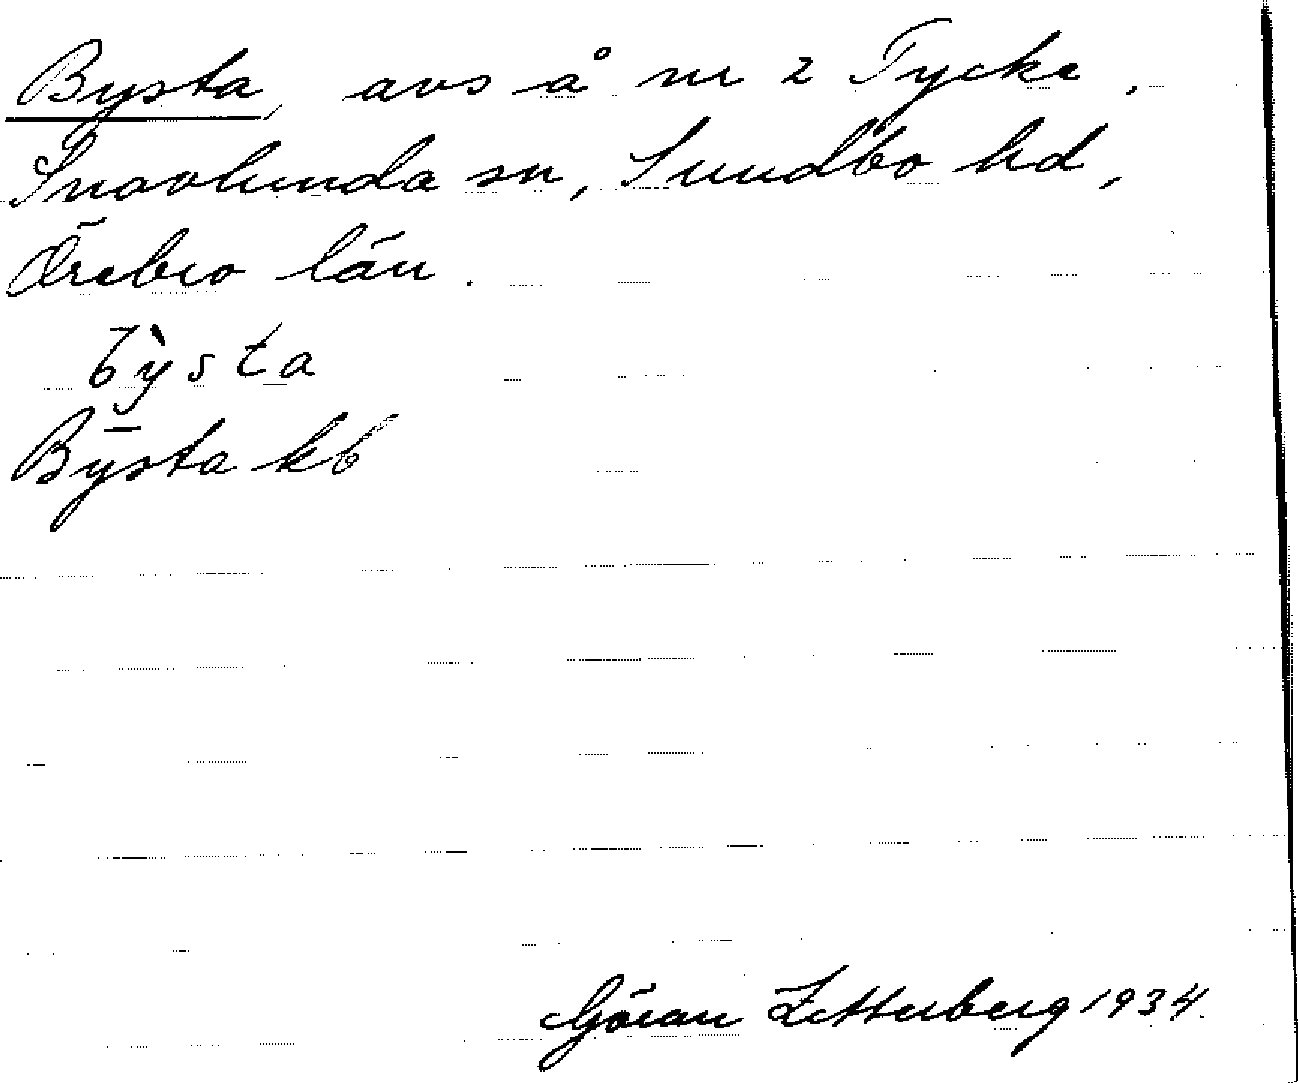 Bysta, avs å nr 2 Tycke,
Snavlunda sn, Sundbo hd,
Örebro län.
bỳsta
Bysta kb
Göran Zetterberg 1934.